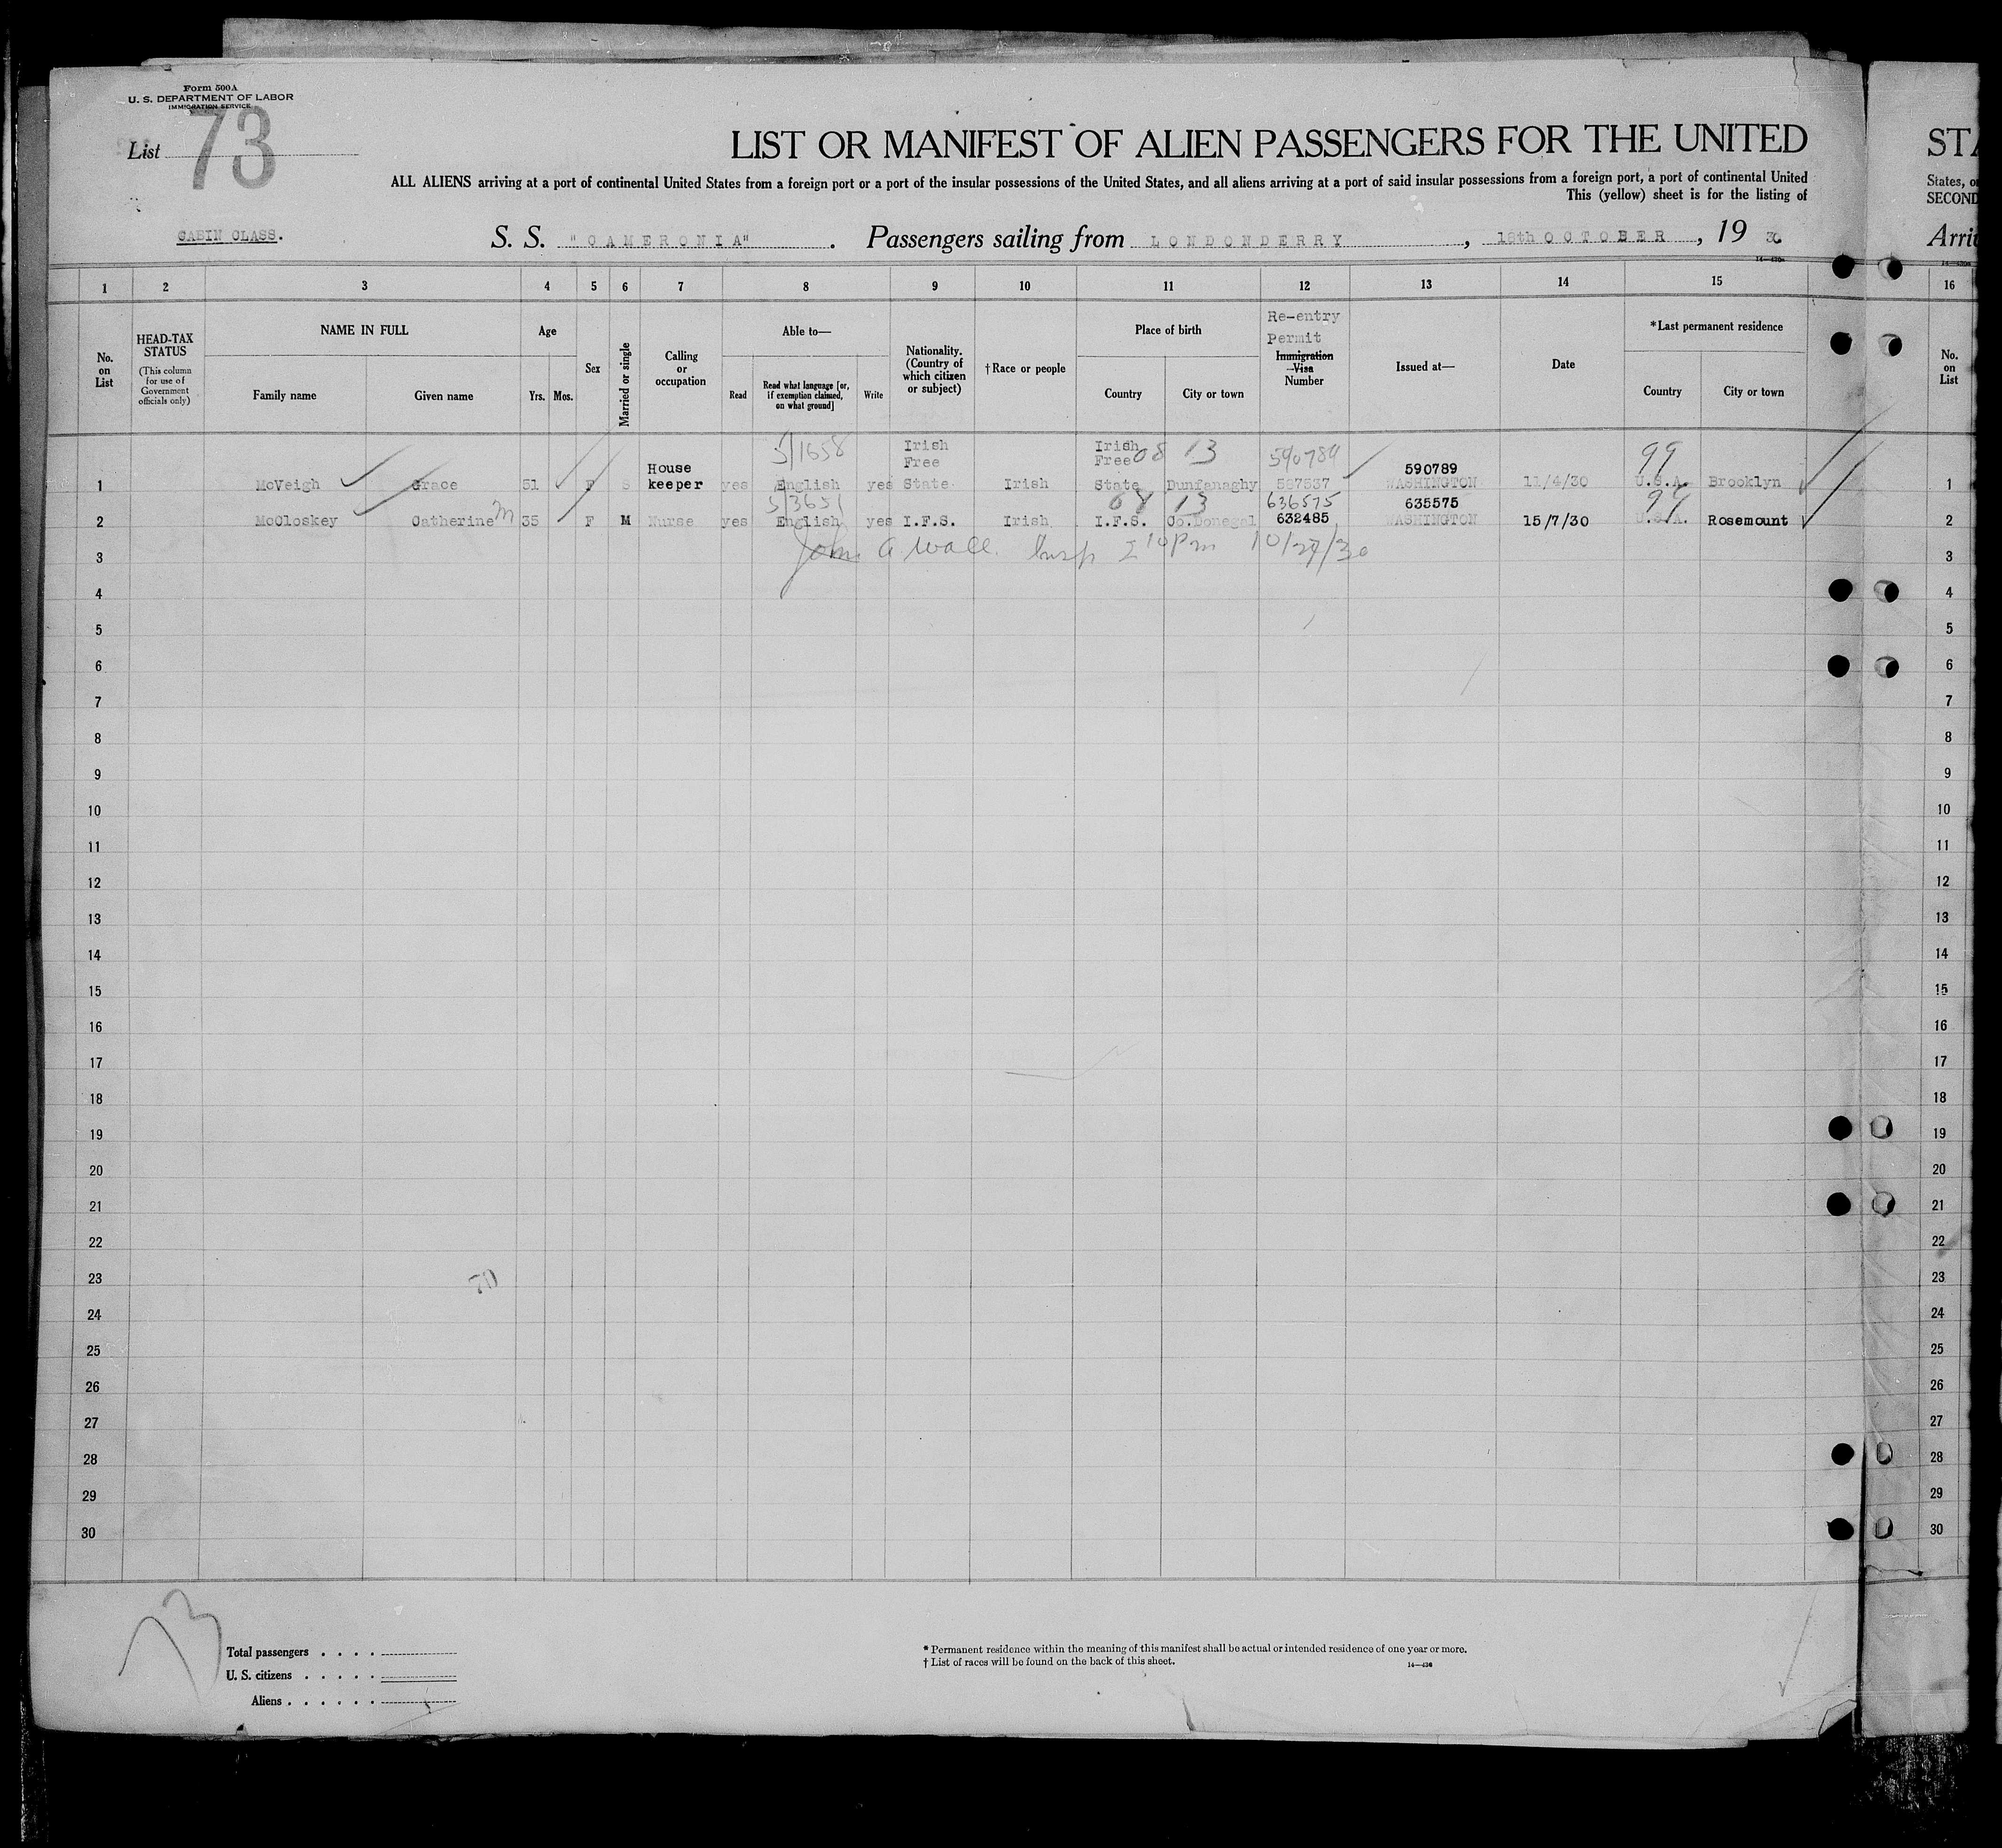 Form 500A
U. S. DEPARTMENT OF LABOR
IMMIGRATION SERVICE
List 73
LIST OR MANIFEST OF ALIEN PASSENGERS FOR THE UNITED
STA
ALL ALIENS arriving at a port of continental United States from a foreign port or a port of the insular possessions of the United States, and all aliens arriving at a port of said insular possessions from a foreign port, a port of continental United
States, o
This (yellow) sheet is for the listing of
SECOND
CABIN CLASS.
S. S. "CAMERONIA". Passengers sailing from LONDONDERRY, 18th OCTOBER, 19 30
Arri
14—430a
1 2 3 4 5 6 7 8 9 10 11 12 13 14 15 16
No. on List
HEAD-TAX STATUS (This column for use of Government officials only)
NAME IN FULL
Family name
Given name
Age
Yrs. Mos.
Sex
Married or single
Calling or occupation
Able to—
Read
Read what language [or, if exemption claimed, on what ground]
Write
Nationality. (Country of which citizen or subject)
†Race or people
Place of birth
Country
City or town
Re-entry Permit
Immigration Visa Number
Issued at—
Date
*Last permanent residence
Country
City or town
No. on List
5/1658 08 13 590789 99
1 McVeigh Grace 51 F S House keeper yes English yes Irish Free State Irish Irish Free State Dunfanaghy 587537 590789 WASHINGTON 11/4/30 U.S.A. Brooklyn 1
5/3651 08 13 636575 99
2 McCloskey Catherine M 35 F M Nurse yes English yes I.F.S. Irish I.F.S. Co.Donegal 632485 635575 WASHINGTON 15/7/30 U.S.A. Rosemount 2
John A Wall. Insp 2 10 pm 10/27/30
3 3
4 4
5 5
6 6
7 7
8 8
9 9
10 10
11 11
12 12
13 13
14 14
15 15
16 16
17 17
18 18
19 19
20 20
21 21
22 22
23 70 23
24 24
25 25
26 26
27 27
28 28
29 29
30 30
73
Total passengers . . . .
U. S. citizens . . . . .
Aliens . . . . . .
* Permanent residence within the meaning of this manifest shall be actual or intended residence of one year or more.
† List of races will be found on the back of this sheet.
14—430